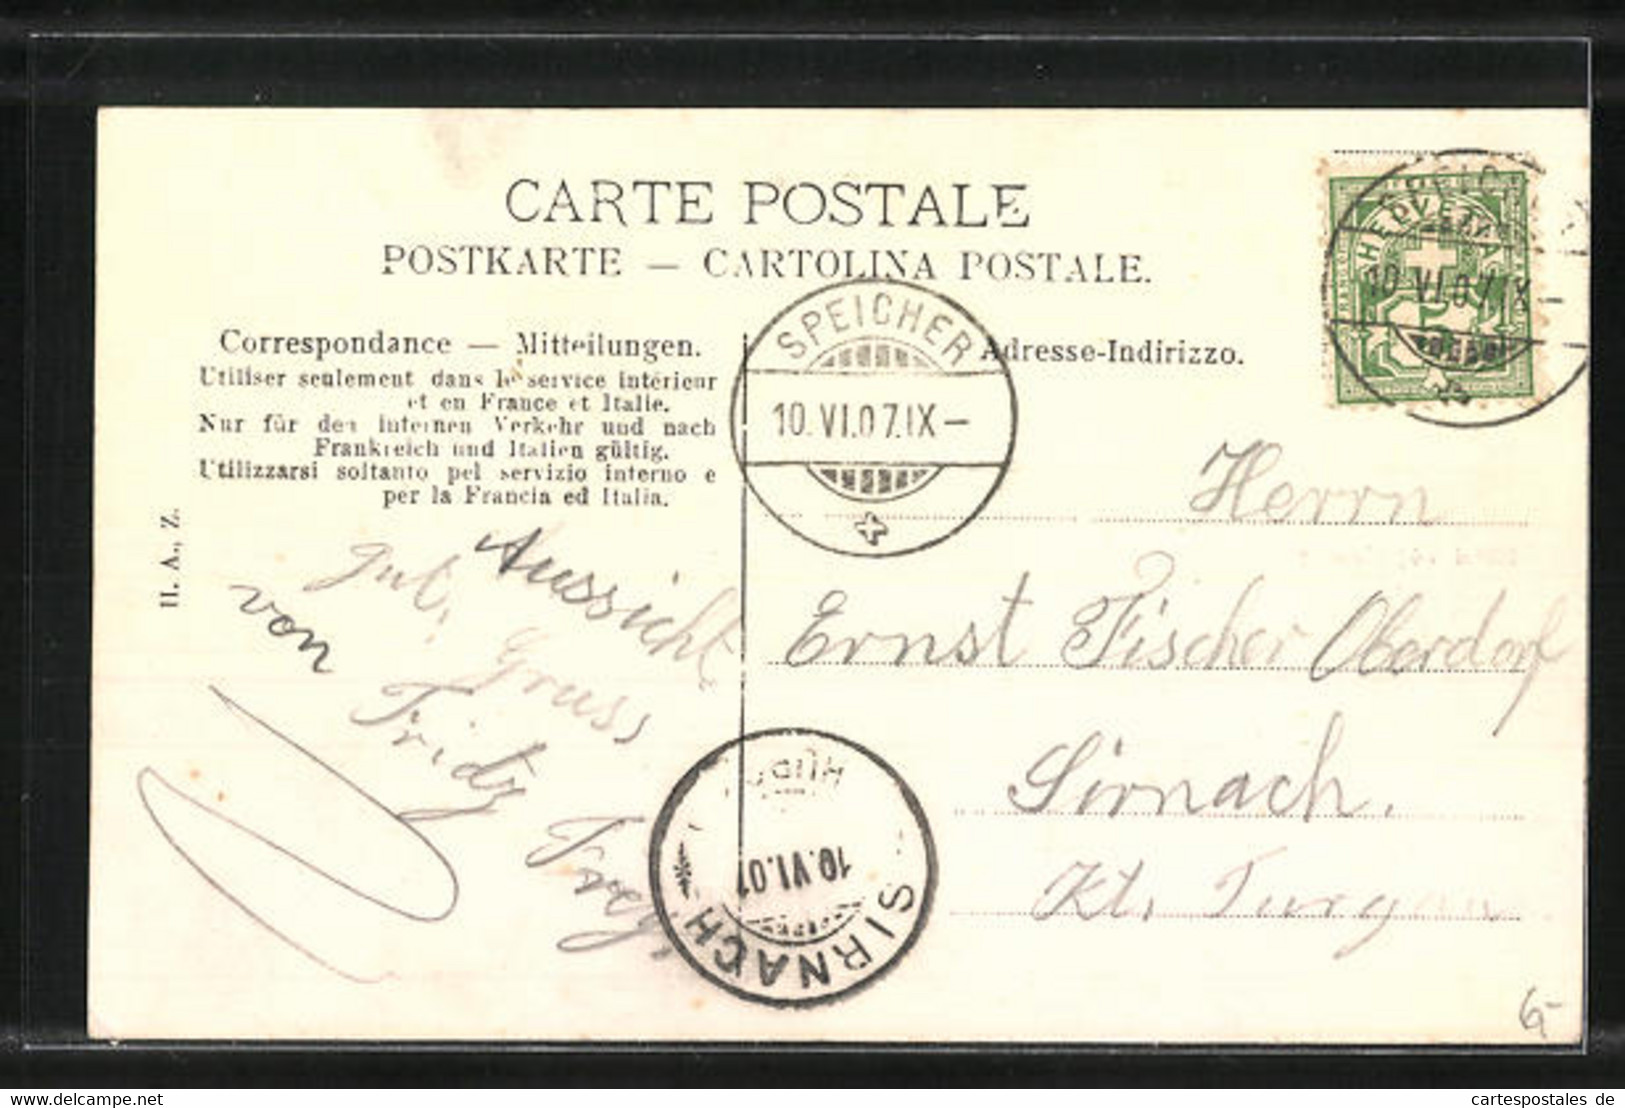 CARTE POSTALE
POSTKARTE — CARTOLINA POSTALE.
Correspondance — Mitteilungen.
Utiliser seulement dans le service intérieur
et en France et Italie.
Nur für den internen Verkehr und nach
Frankreich und Italien gültig.
Utilizzarsi soltanto pel servizio interno e
per la Francia ed Italia.
Adresse-Indirizzo.
H. A., Z.
HELVETIA
10 VI.07.IX–
SPEICHER
10.VI.07.IX–
Herrn
Ernst Fischer Oberdorf
Sirnach.
Kt. Turgau
Aussicht
Gruss
von Fridz Frey
SIRNACH
10.VI.07
6,-
cartespostales de